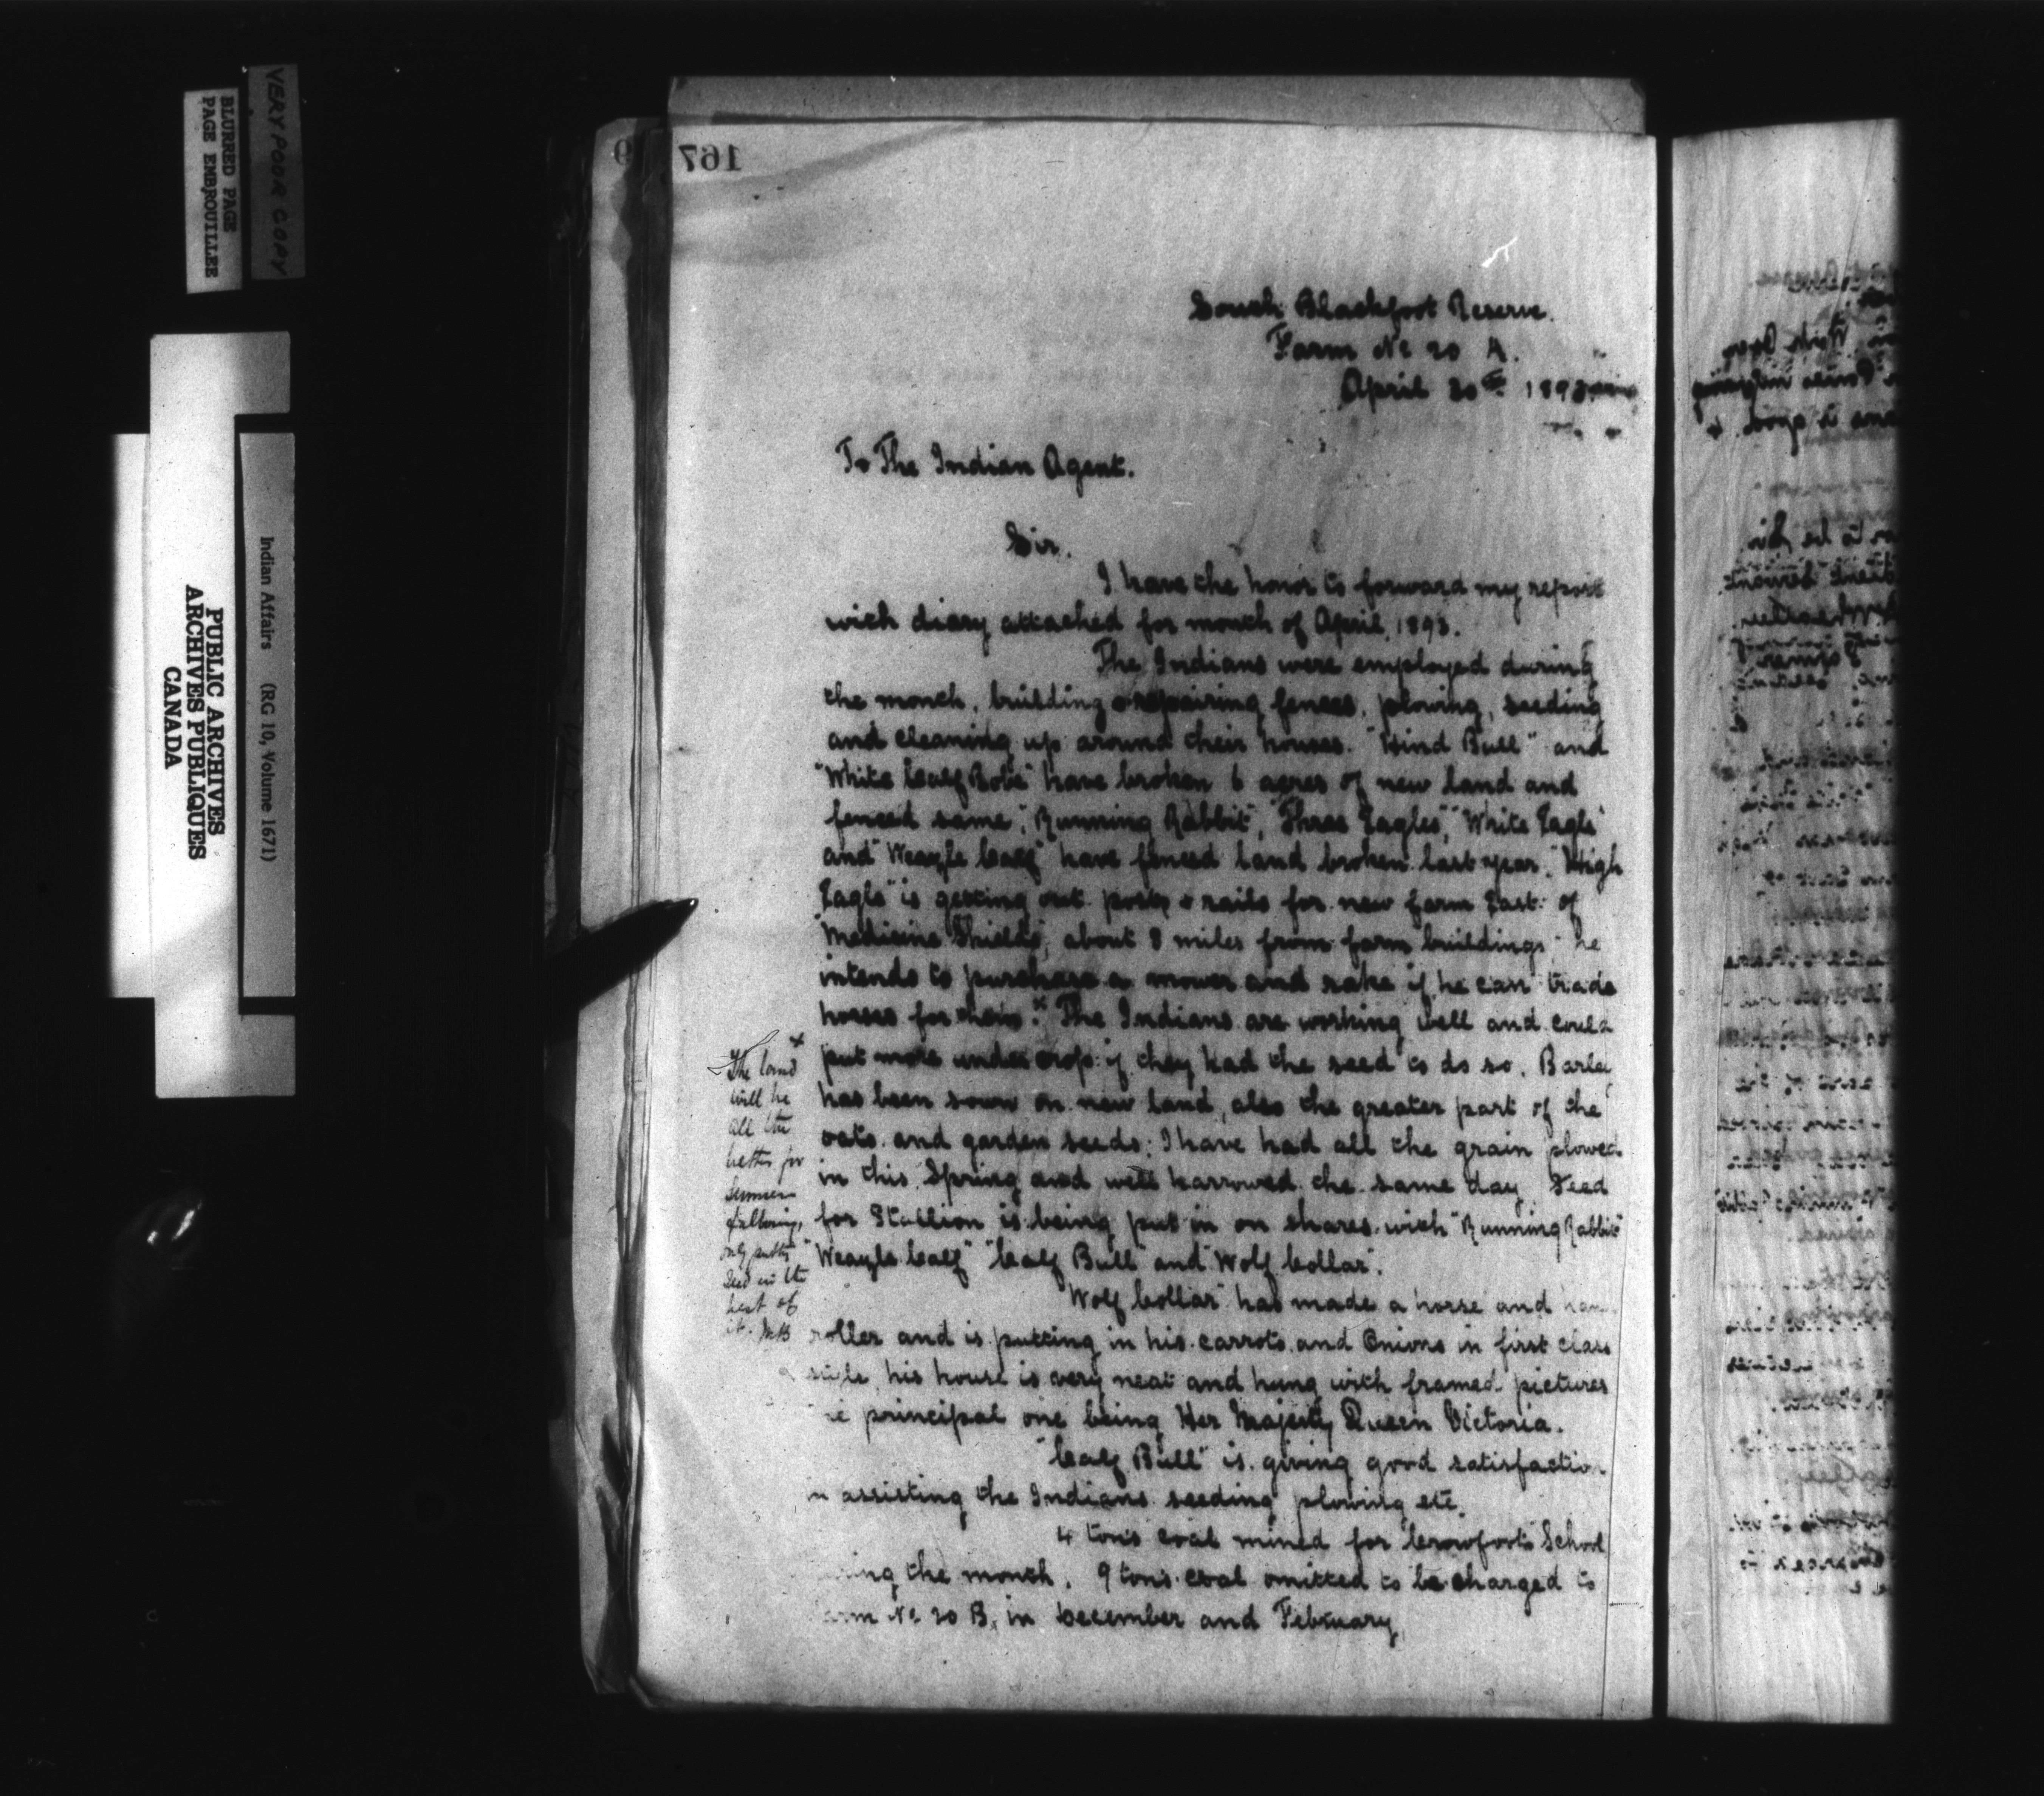 VERY POOR COPY
BLURRED PAGE
PAGE EMBROUILLEE
PUBLIC ARCHIVES
ARCHIVES PUBLIQUES
CANADA
Indian Affairs (RG 10, Volume 1671)
167
South Blackfoot Reserve.
Farm No 20 A.
April 30th 1893
To The Indian Agent.
Sir.
I have the honor to forward my report
with diary attached for month of April, 1893.
The Indians were employed during
the month, building & repairing fences, plowing, seeding
and cleaning up around their houses. "Hind Bull" and
"White Calf Robe" have broken 6 acres of new land and
fenced same, "Running Rabbit", "Three Eagles", "White Eagle"
and "Weazle Calf" have fenced land broken last year. "High
Eagle" is getting out posts & rails for new farm East of
"Medicine Shields", about 8 miles from farm buildings he
intends to purchase a mower and rake if he can trade
horses for them.x The Indians are working well and could
put more under crop if they had the seed to do so. Barley
has been sown on new land, also the greater part of the
oats and garden seeds; I have had all the grain plowed
in this Spring and well harrowed the same day. Feed
for Stallion is being put in on shares with "Running Rabbit"
"Weazle Calf" "Calf Bull" and "Wolf Collar".
"Wolf Collar" has made a horse and
roller and is putting in his carrots and Onions in first class
style, his house is very neat and hung with framed pictures
principal one being Her Majesty Queen Victoria.
"Calf Bull" is giving good satisfaction
assisting the Indians seeding plowing etc.
4 tons coal mined for Crowfoots School
the month. 9 tons coal omitted to be charged to
No 20 B, in December and February.
x
The land
will be
all the
better for
summer
fallowing,
only putting
seed in the
best of
it. MB